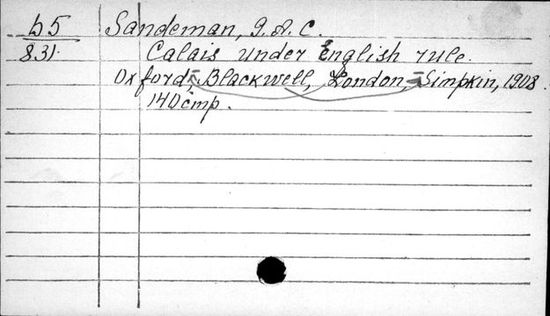 b5 Sandeman, G. A. C.
831. Calais under English rule.
Oxford, Blackwell, London, Simpkin, 1908.
140 cmp.